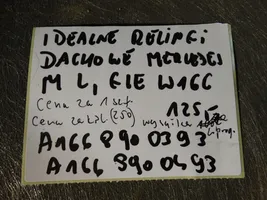 IDEALNE RELINGI
DACHOWE MERCEDES
ML, GLE W166
Cena za 1 szt. 125,-
Cena za kpl (250) wysyłka
A166 890 0393
A166 890 0493